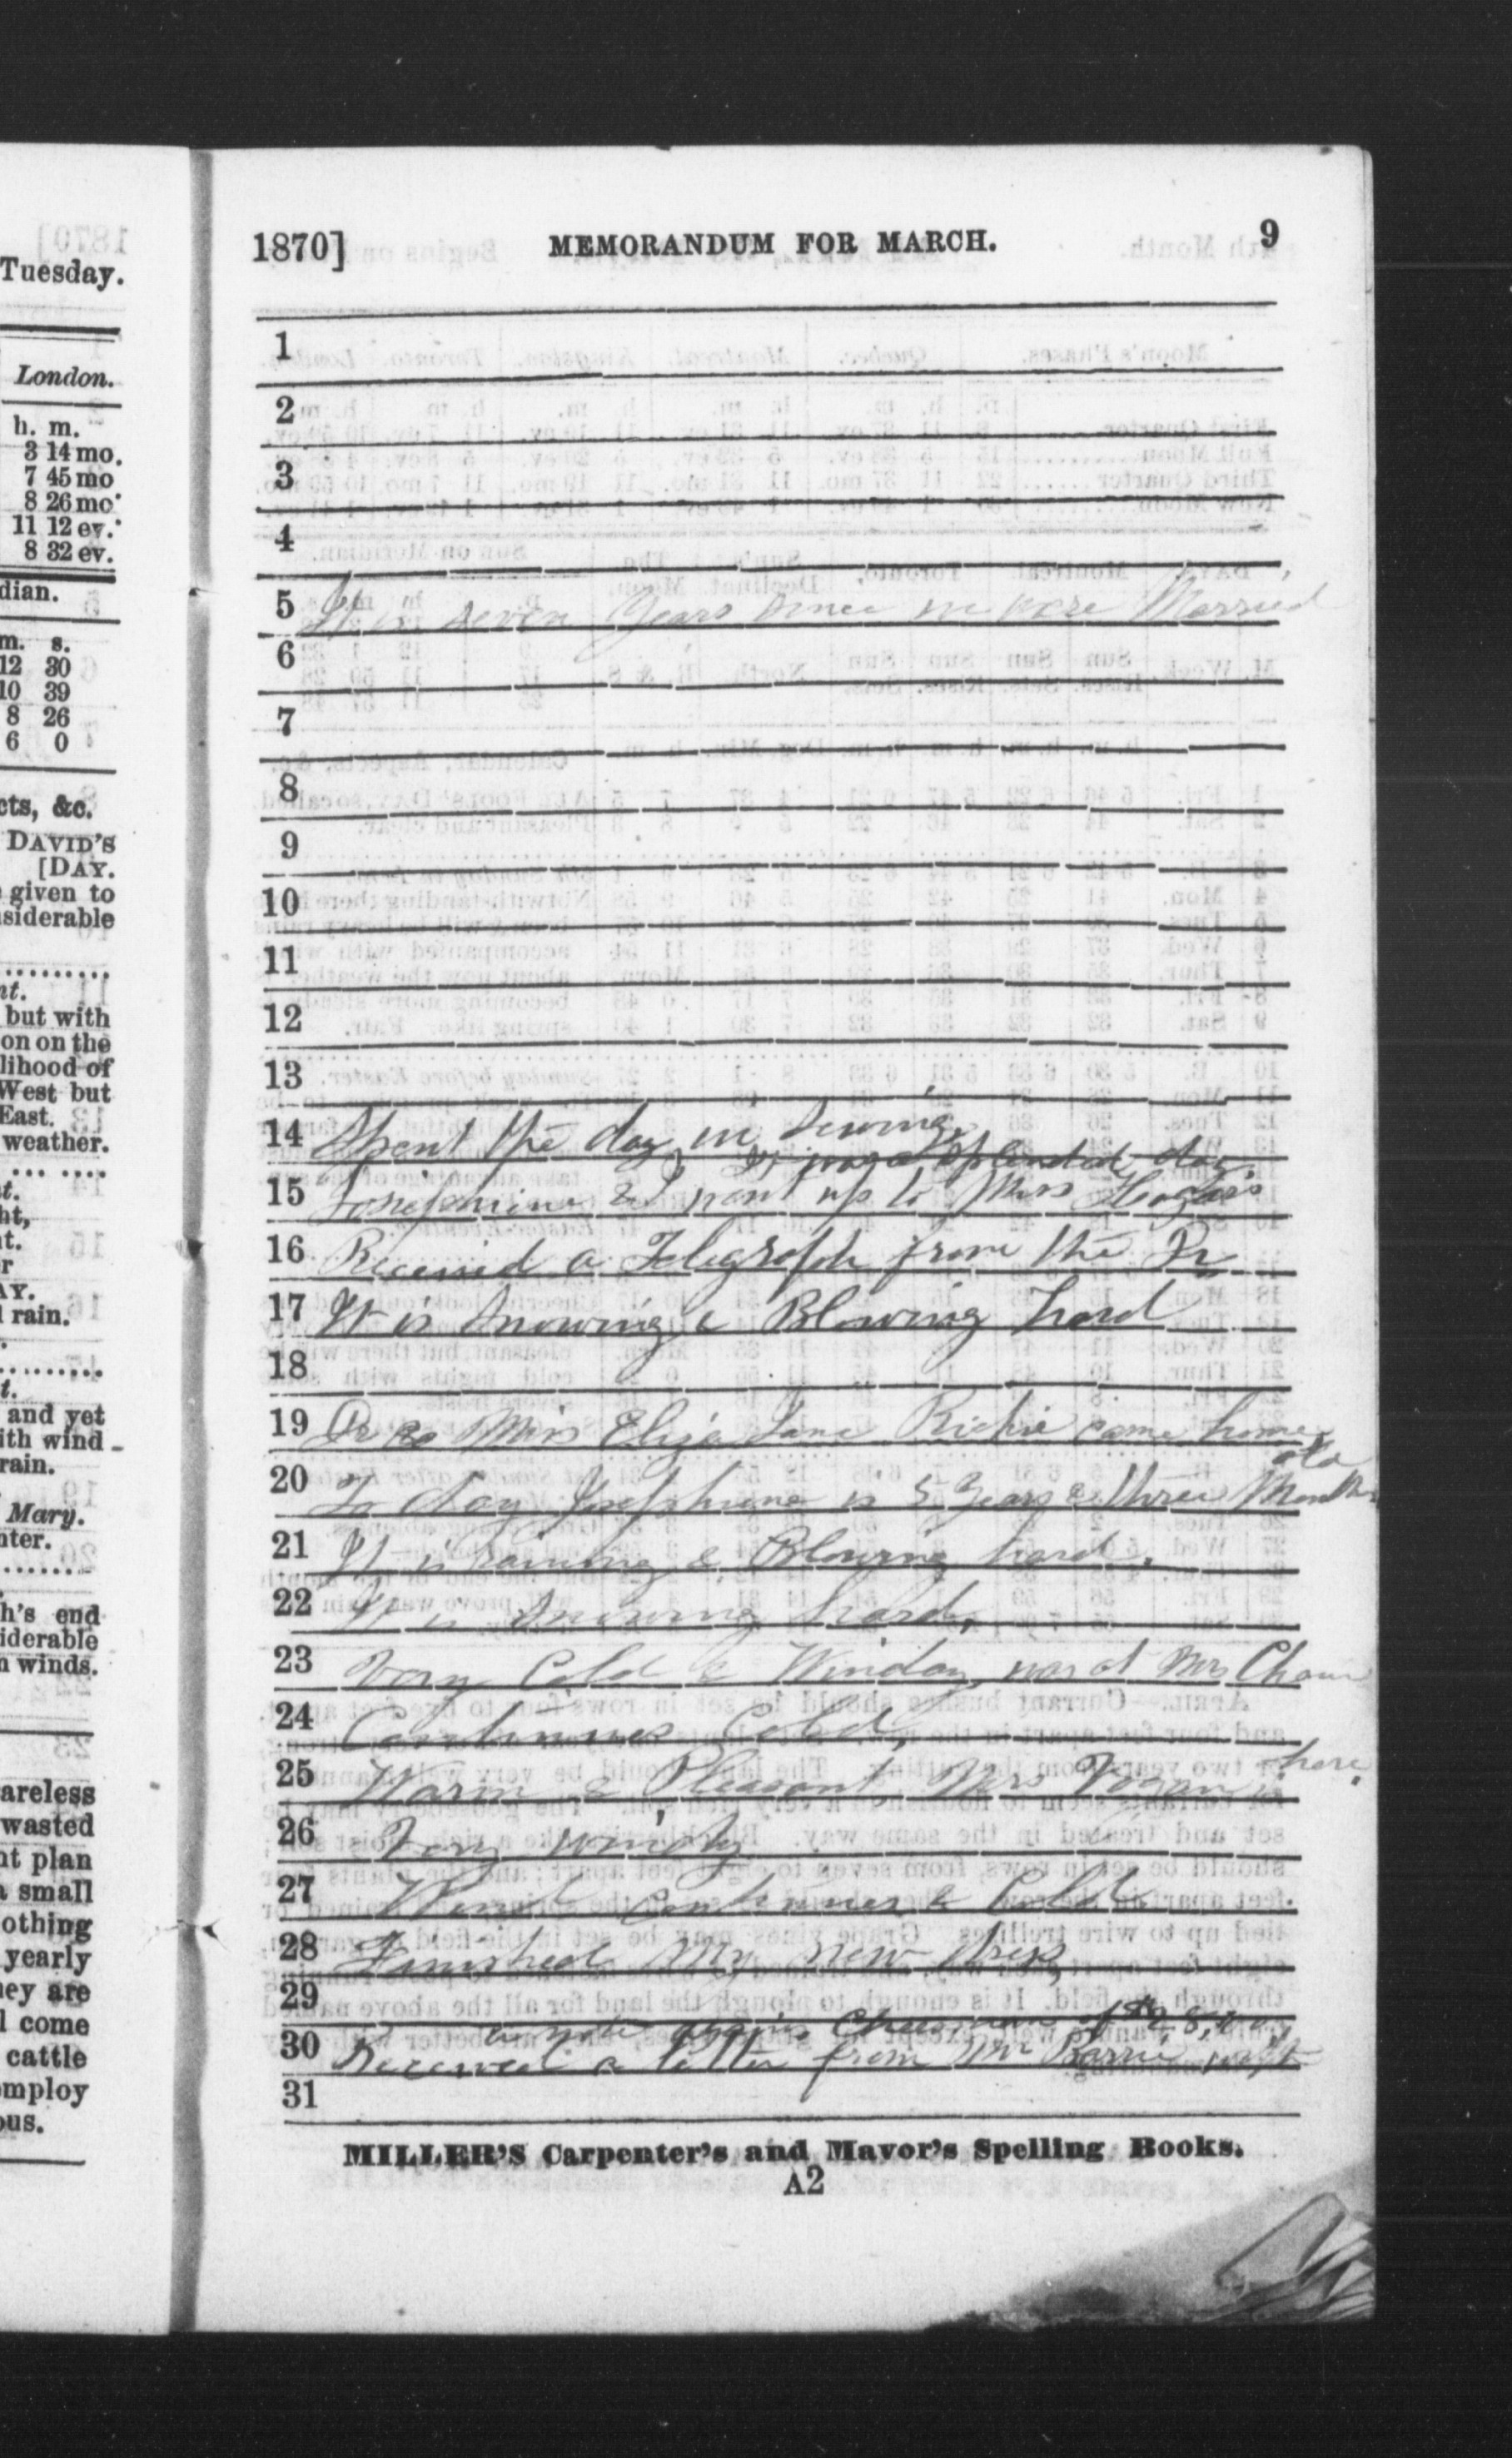 Tuesday.
London.
h. m.
3 14 mo.
7 45 mo
8 26 mo
11 12 ev.
8 32 ev.
dian.
m. s.
12 30
10 39
8 26
6 0
cts, &c.
DAVID'S
[DAY.
given to
siderable
..........
nt.
but with
on on the
lihood of
West but
East.
weather.
... ....
t.
ht,
nt.
r
AY.
rain.
.........
t.
and yet
ith wind
rain.
Mary.
nter.
........
h's end
iderable
n winds.
areless
wasted
nt plan
a small
othing
yearly
ney are
l come
cattle
employ
ous.
1870] MEMORANDUM FOR MARCH. 9
1
2
3
4
5 It is seven years since we ware Married
6
7
8
9
10
11
12
13
14 Spent the day in sewing.
It was a splended day.
15 Josephine & I went up to Mrs
16 Received a Telegraph from the Dr
17 It is snowing & Blowing hard
18
19 Dr & Mrs Eliza Jane Richie came home
old
20 To day Josephine is 5 years & three Months
21 It is raining & Blowing hard.
22 It is snowing hard,
23 Very Cold & Winday was at Mrs
24 Continues Cold,
here.
25 Warm & Pleasant Mrs is
26 Very windy
27 Wind continues & Cold.
28 Finished My new dress,
29
a note
30 Received a letter from Mr Barrie with
31
MILLER'S Carpenter's and Mavor's Spelling Books.
A2